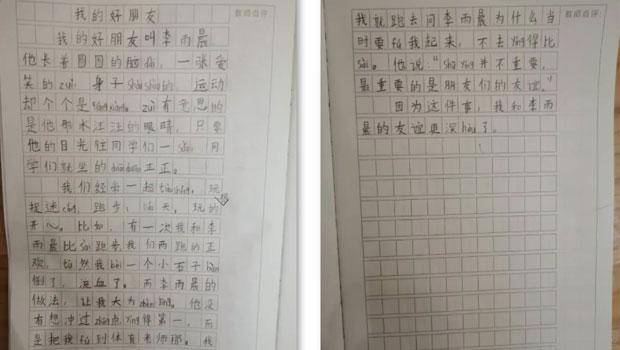 我的好朋友
教师点评:
我的好朋友叫李雨晨
他长着圆圆的脸dàn，一张爱
笑的zuǐ，身子shòushòu的，运动
却个个是，zuì有意思的
是他那水汪汪的眼睛，只要
他的目光往同学们一sǎo，同
学们就坐的duānduān正正。
我们经常一起，玩
捉迷cáng，跑步，聊天，玩的
开心。比如，有一次我和李
雨晨比sài跑步我们两跑的正
欢，忽然我bèi一个小石子bàn
倒了，流血了。而李雨晨的
做法，让我大为zhènjīng。他没
有想冲过zhōng点，yíng得第一，而
是把我fú到体育老师那。我
教师点评:
我就跑去问李雨晨为什么当
时要fú我起来，不去yíng得比
sài。他说："shūyíng并不重要，
最重要的是朋友们的友谊。"
因为这件事，我和李雨
晨的友谊更深hòu了。